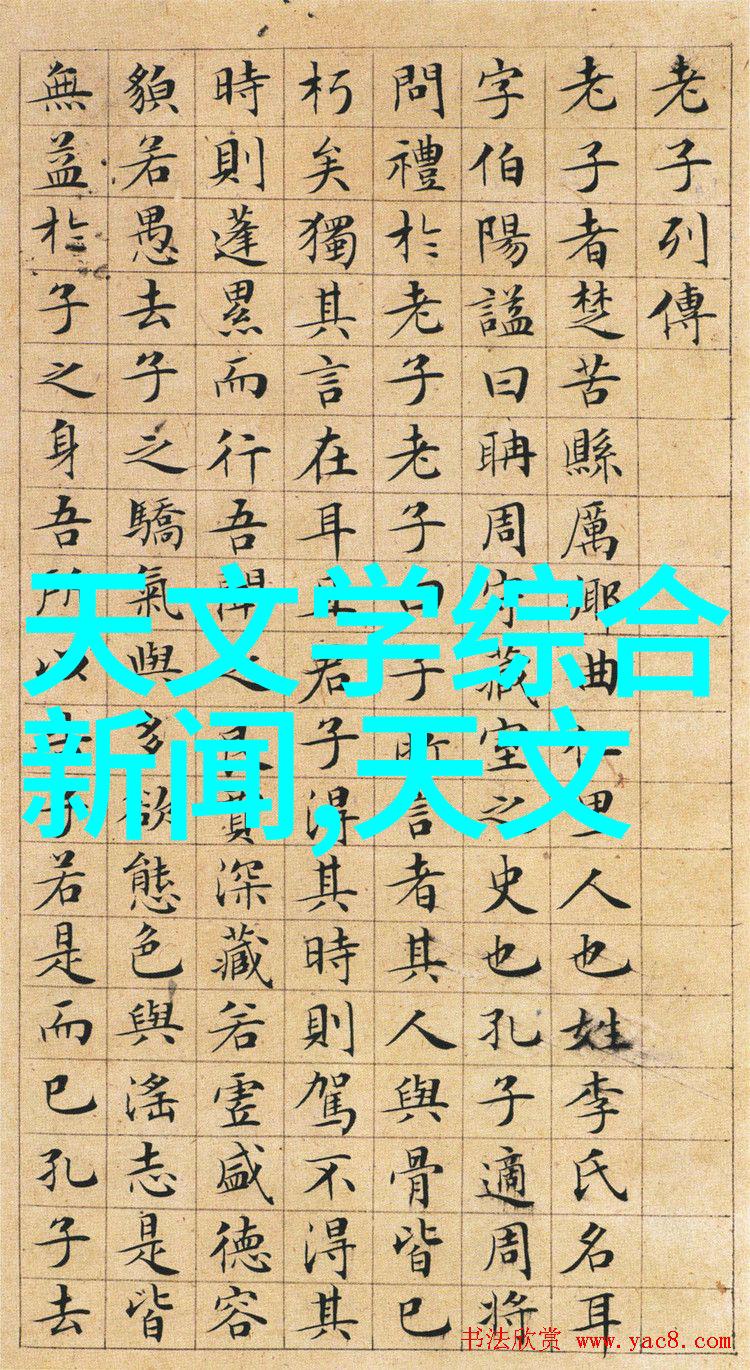 老子列傳
老子者楚苦縣厲鄉曲仁里人也姓李氏名耳
字伯陽謚曰聃周守藏室之史也孔子適周將
問禮於老子老子曰子所言者其人與骨皆已
朽矣獨其言在耳且君子得其時則駕不得其
時則蓬累而行吾聞之良賈深藏若虛盛德容
貌若愚去子之驕氣與多欲態色與淫志是皆
無益於子之身吾所以告子若是而已孔子去
天文学综合
新闻,天文
书法欣赏 www.yac8.com